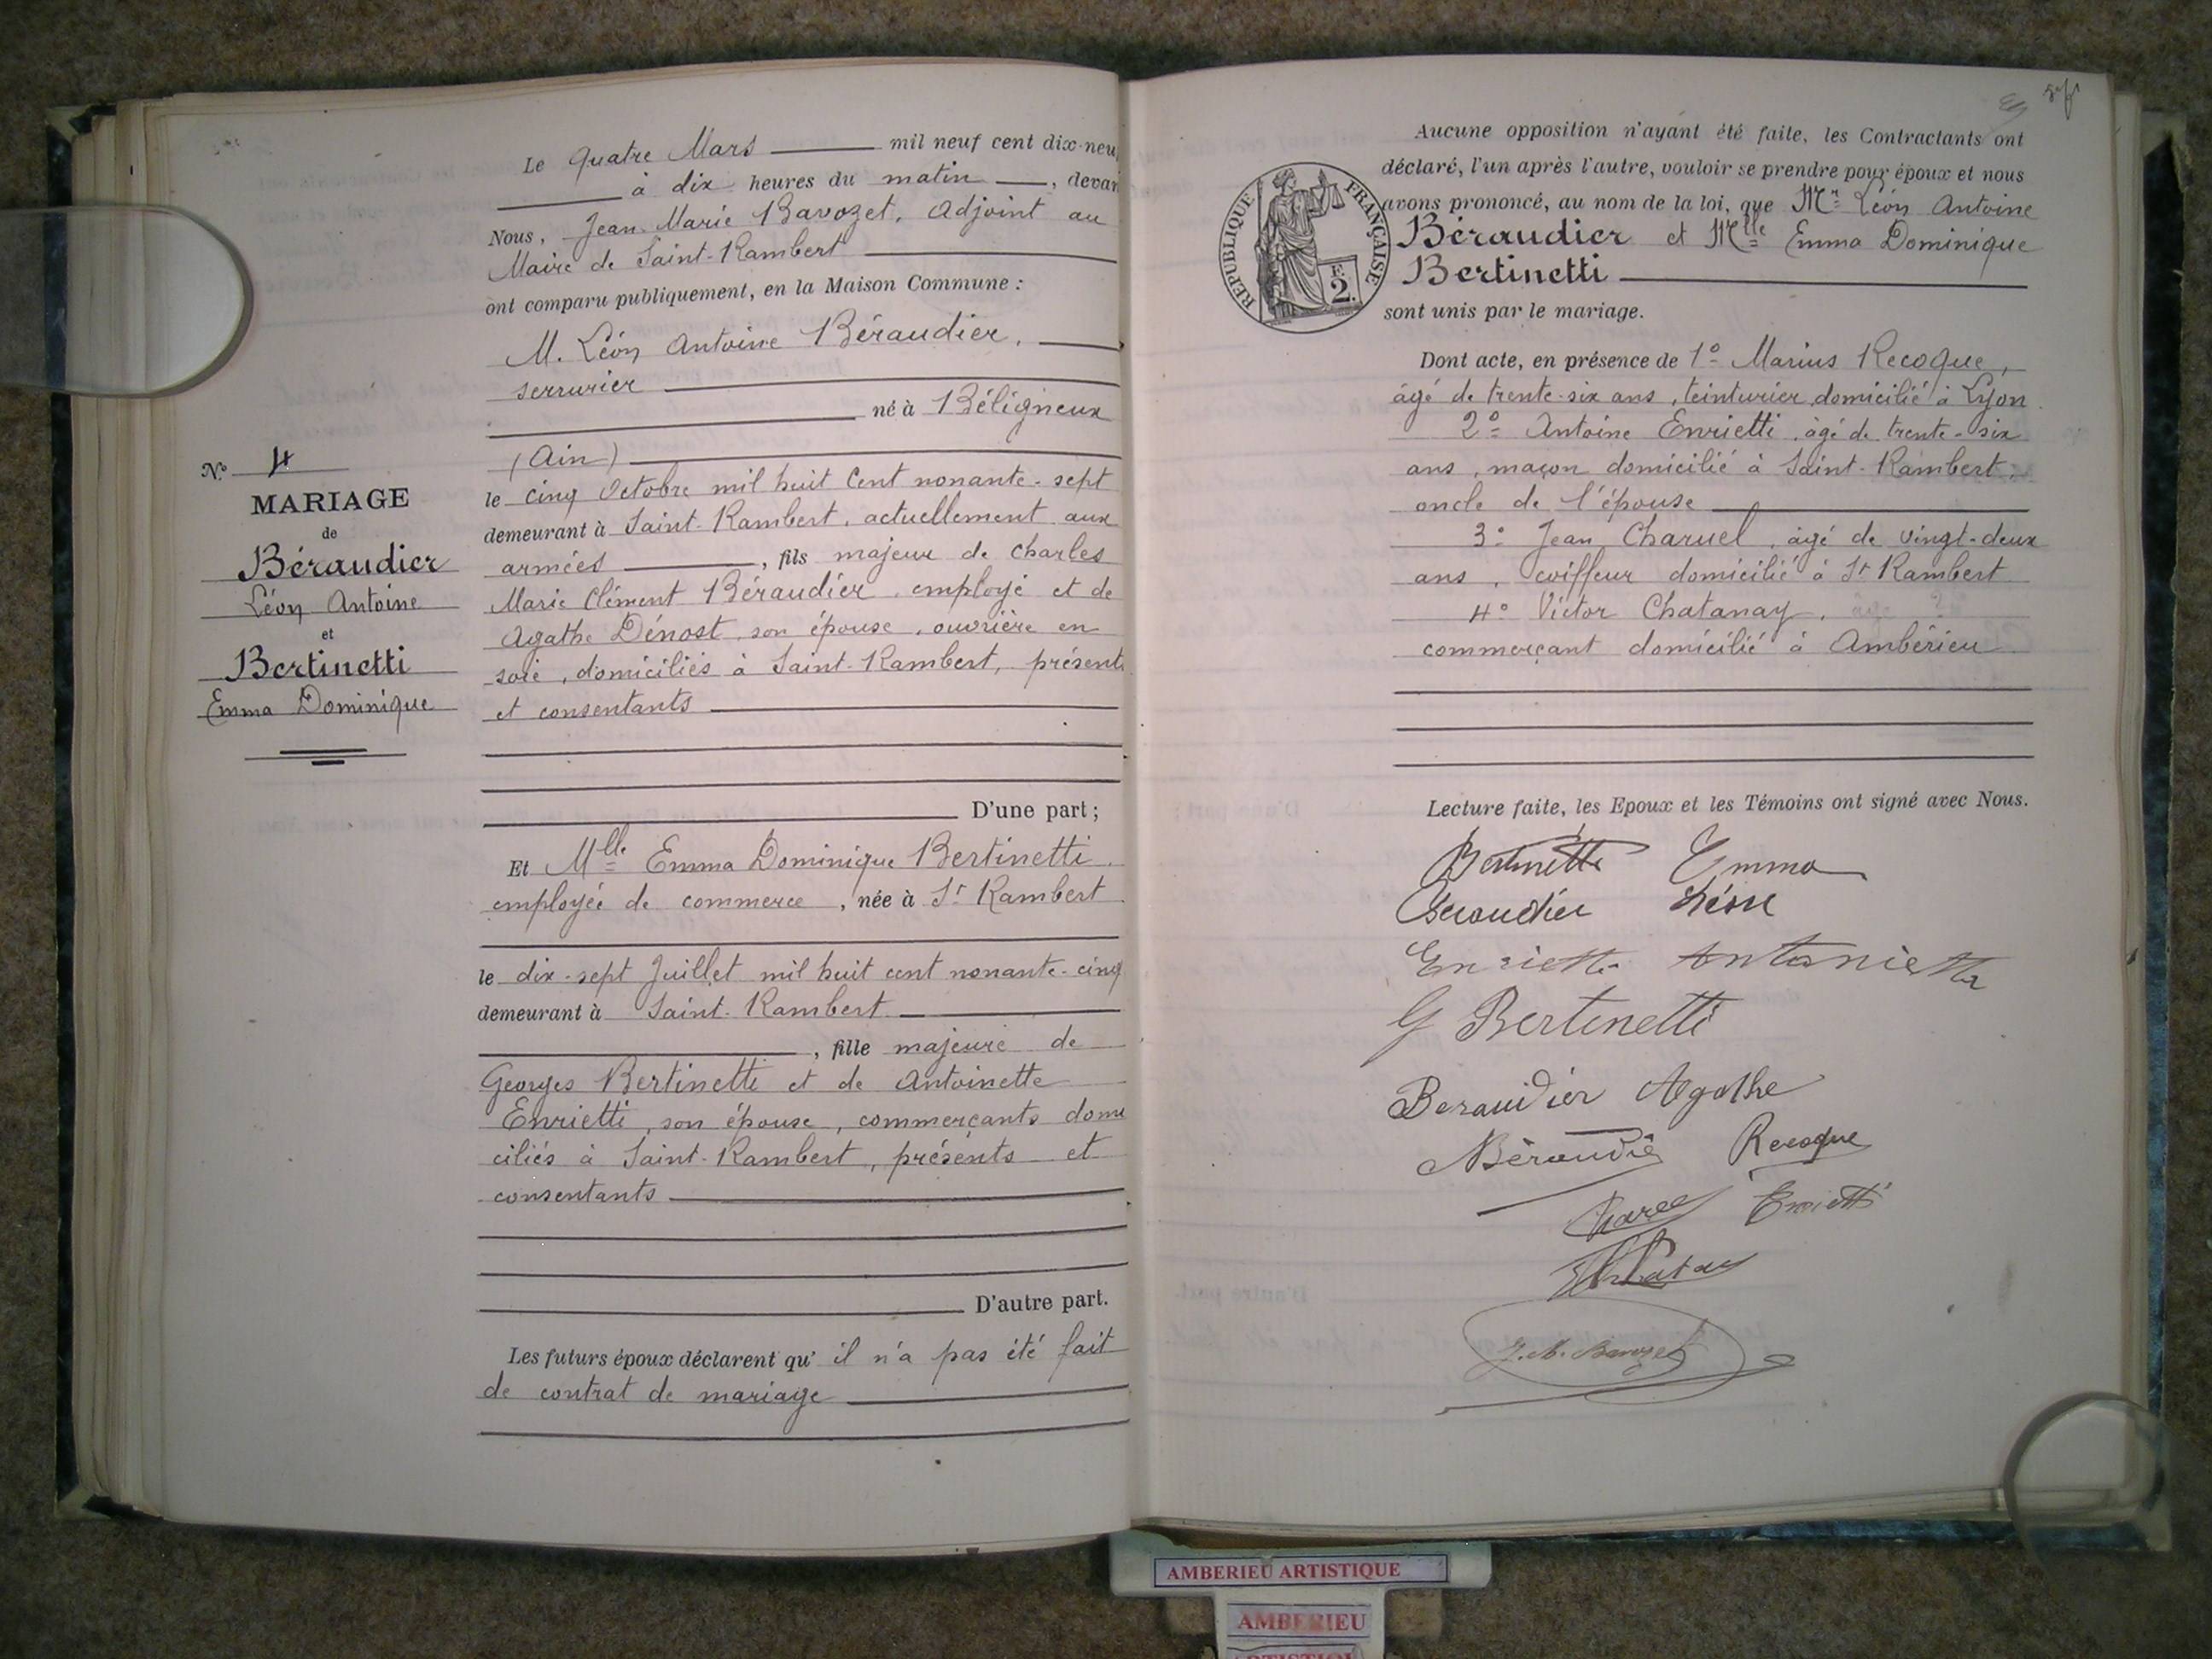 N° 4
MARIAGE
de
Béraudier
Léon Antoine
et
Bertinetti
Emma Dominique
Le quatre Mars mil neuf cent dix-neu
à dix heures du matin , devan
Nous, Jean-Marie Bavozet, Adjoint au
Maire de Saint-Rambert
ont comparu publiquement, en la Maison Commune :
M. Léon Antoine Béraudier,
serrurier
né à Béligneux
(Ain)
le cinq Octobre mil huit Cent nonante-sept
demeurant à Saint-Rambert, actuellement aux
armées , fils majeur de Charles
Marie Clément Béraudier, employé et de
Agathe Dénost, son épouse, ouvrière en
soie, domiciliés à Saint-Rambert, présents
et consentants
D'une part ;
Et Mlle Emma Dominique Bertinetti,
employée de commerce , née à St Rambert
le dix-sept Juillet mil huit cent nonante-cinq
demeurant à Saint-Rambert
, fille majeure de
Georges Bertinetti et de Antoinette
Enrietti, son épouse, commerçants domi
ciliés à Saint-Rambert, présents et
consentants
D'autre part.
Les futurs époux déclarent qu' il n'a pas été fait
de contrat de mariage
Aucune opposition n'ayant été faite, les Contractants ont
déclaré, l'un après l'autre, vouloir se prendre pour époux et nous
avons prononcé, au nom de la loi, que Mr Léon Antoine
Béraudier et Mlle Emma Dominique
Bertinetti
sont unis par le mariage.
RÉPUBLIQUE FRANÇAISE
F.
2.
Dont acte, en présence de 1° Marius Recoque,
âgé de trente-six ans, teinturier domicilié à Lyon
2° Antoine Enrietti, âgé de trente-six
ans, maçon domicilié à Saint-Rambert,
oncle de l'épouse
3° Jean Charvel, âgé de vingt-deux
ans, coiffeur domicilié à St Rambert
4° Victor Chatanay,
commerçant domicilié à Ambérieu
Lecture faite, les Epoux et les Témoins ont signé avec Nous.
Bertinetti Emma
Beraudier Léon
Enrietti Antonietta
G Bertinetti
Beraudier Agathe
Béraudier Recoque
Enrietti
J. M. Bavozet
AMBERIEU ARTISTIQUE
AMBERIEU
ARTISTIQUE